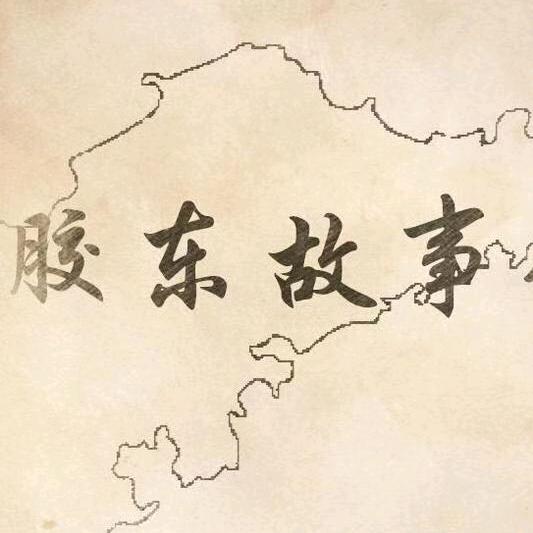 胶东故事